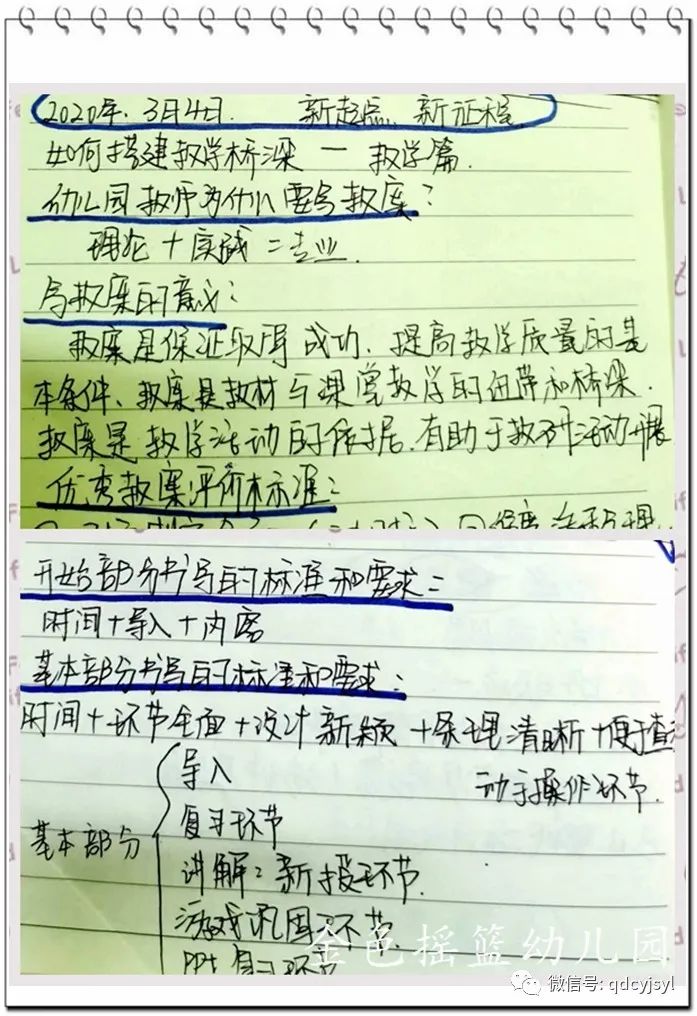 2020年.3月4日. 新起点、新征程
如何搭建教学桥梁 — 教学篇.
幼儿园教师为什么要写教案?
理论+实践=专业.
写教案的意义:
教案是保证取得成功、提高教学质量的基
本条件、教案是教材与课堂教学的纽带和桥梁.
教案是教学活动的依据.有助于教研活动开展
优秀教案评价标准:
开始部分书写的标准和要求:
时间+导入+内容
基本部分书写的标准和要求:
时间+环节全面+设计新颖+条理清晰+便于查
动手操作环节.
导入
复习环节
基本部分
讲解:新授环节.
游戏巩固环节.
PPt复习环节
金色摇篮幼儿园
微信号: qdcyjsyl